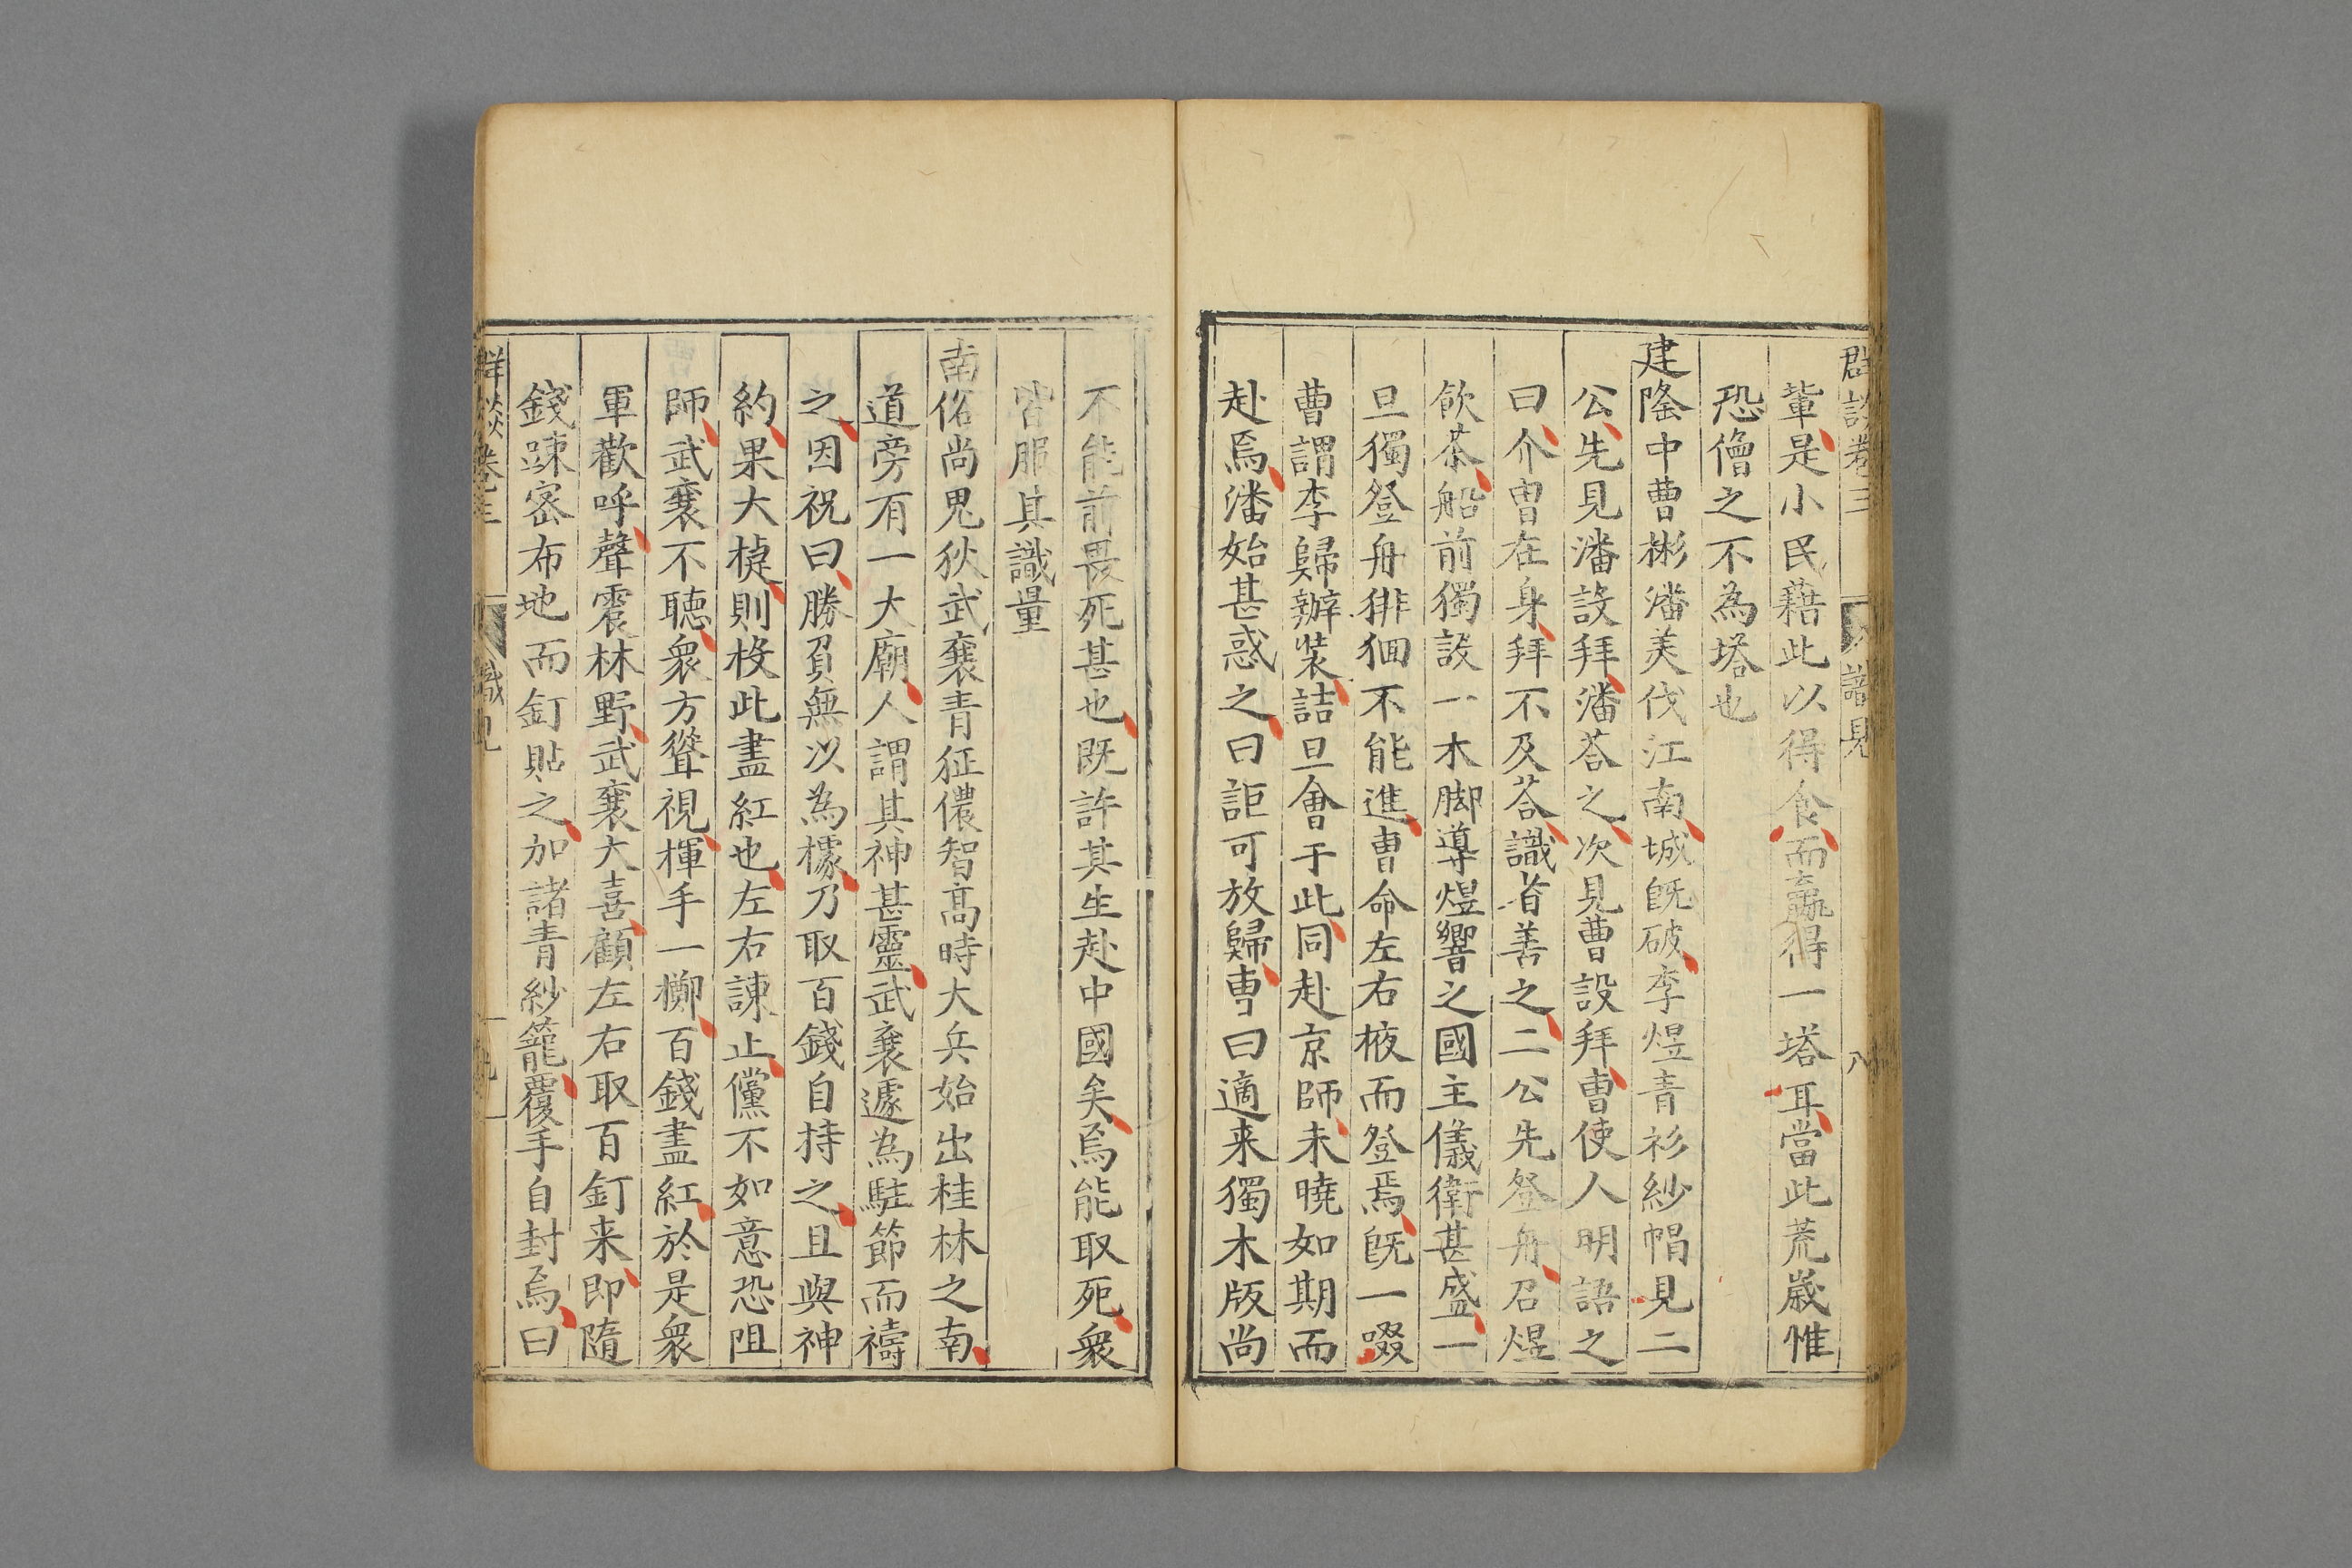 群談卷三 識見 八
軰是小民藉此以得食而贏得一塔耳當此荒歲惟
恐僧之不為塔也
建隆中曹彬潘美伐江南城既破李煜青衫紗帽見二
公先見潘設拜潘荅之次見曹設拜曹使人明語之
曰介冑在身拜不及荅識者善之二公先登舟召煜
飲茶船前獨設一木脚導煜嚮之國主儀衛甚盛一
旦獨登舟徘徊不能進曹命左右掖而登焉既一啜
曹謂李歸辦裝詰旦會于此同赴京師未曉如期而
赴焉潘始甚惑之曰詎可放歸曹曰適来獨木版尚
不能前畏死甚也既許其生赴中國矣焉能取死衆
皆服其識量
南俗尚鬼狄武襄青征儂智髙時大兵始出桂林之南
道旁有一大廟人謂其神甚靈武襄遽為駐節而禱
之因祝曰勝負無以為據乃取百錢自持之且與神
約果大㨗則投此盡紅也左右諫止儻不如意恐阻
師武襄不聽衆方聳視揮手一擲百錢盡紅於是衆
軍歡呼聲震林野武襄大喜顧左右取百釘来即隨
錢踈密布地而釘貼之加諸青紗籠覆手自封焉曰
群談卷三 識見